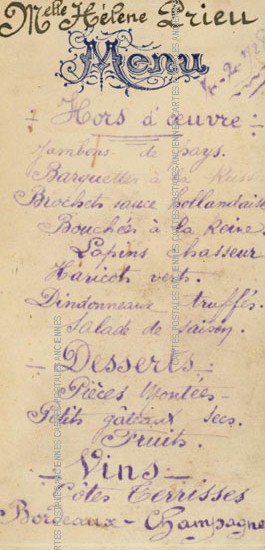 Melle Hélène Prieu
Menu
Hors d'œuvre
Jambons de pays.
Barquettes à la
Brochets sauce hollandaise
Bouchés à la Reine.
Lapins chasseur
Haricots verts.
Dindonneaux truffés.
Salade de saison.
Desserts
Pièces Montées
Petits gâteaux secs.
Fruits.
Vins
Côtes Terrisses
Bordeaux - Champagne
CARTES POSTALES ANCIENNES